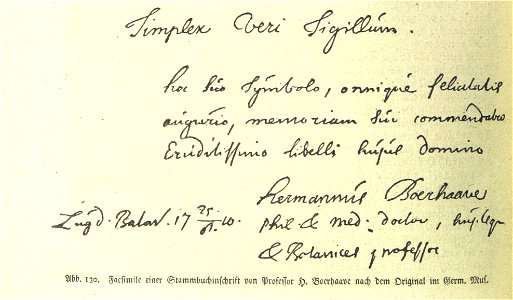 Simplex Veri Sigillum.
hoc suo symbolo, omnique felicitatis
augurio, memoriam sui commendabo
Eruditissimo libelli hujus domino
Hermannus Boerhaave
Lugd. Batav. 17 25/01. 10. phil & med. doctor, hujusque
& Botanices professor
Abb. 130. Facsimile einer Stammbuchinschrift von Professor H. Boerhaave nach dem Original im Germ. Mus.